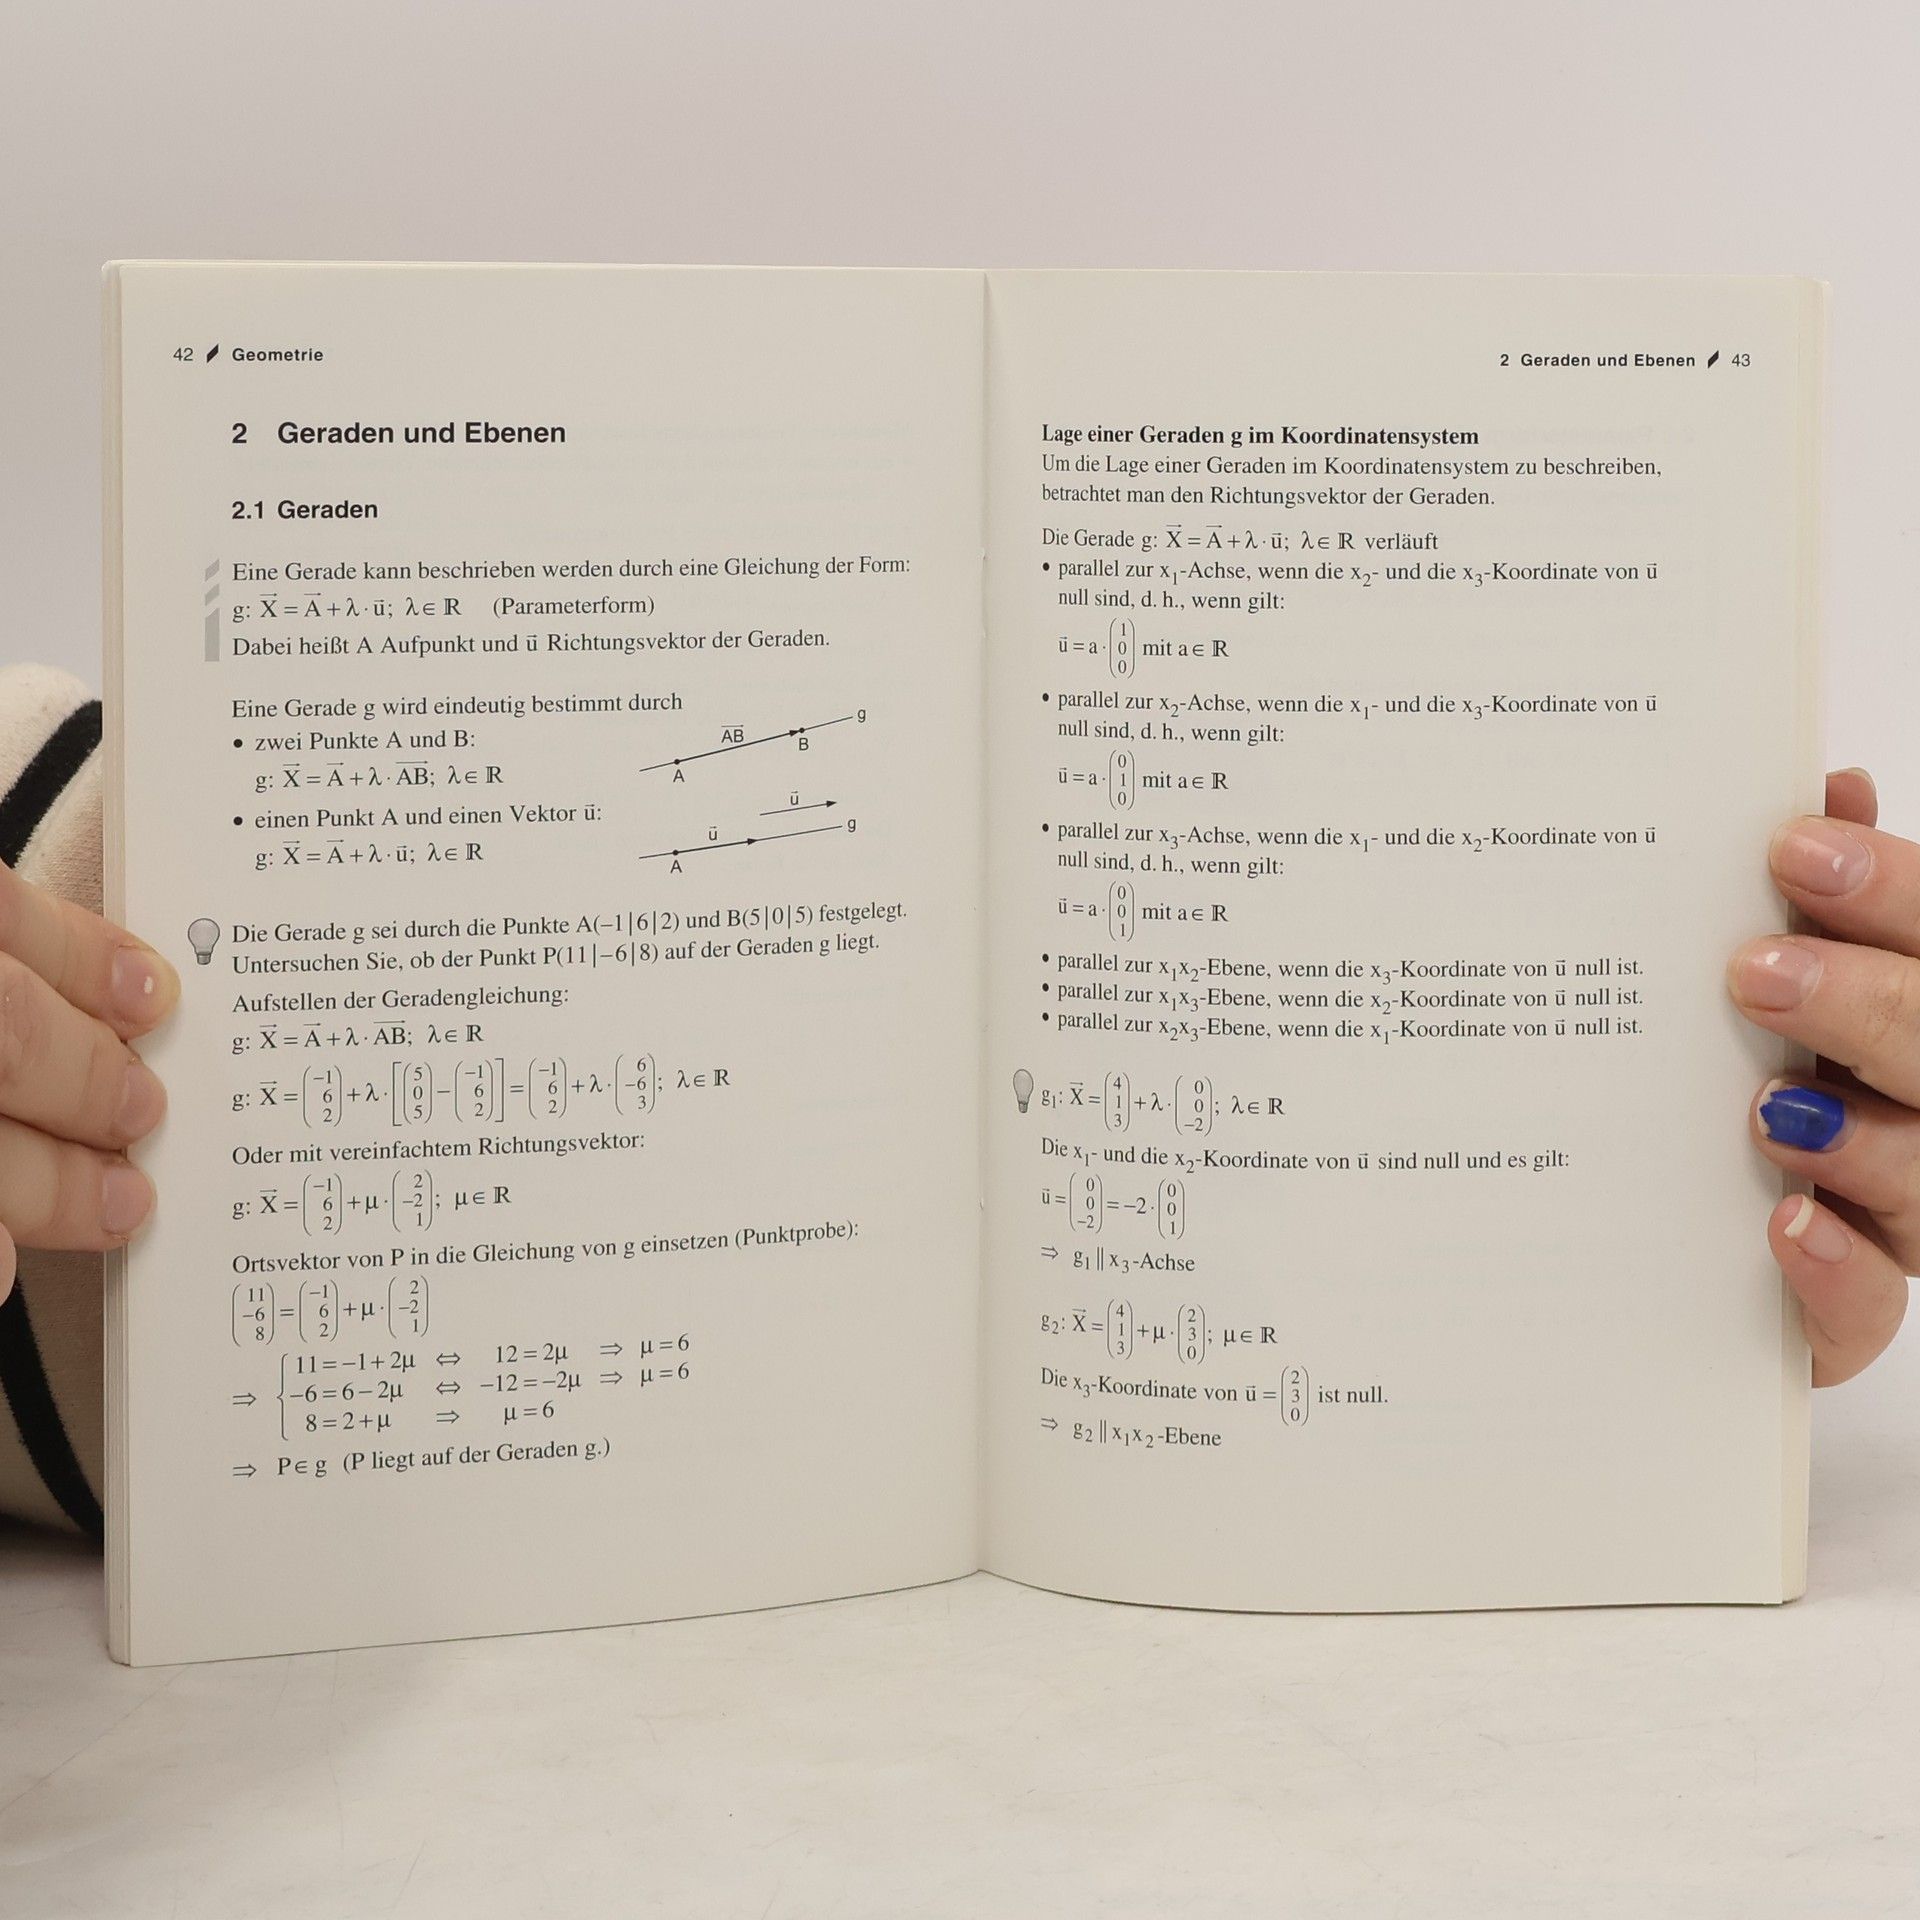 42 Geometrie
2 Geraden und Ebenen
2.1 Geraden
Eine Gerade kann beschrieben werden durch eine Gleichung der Form:
g: X⃗ = A⃗ + λ · u⃗; λ ∈ ℝ (Parameterform)
Dabei heißt A Aufpunkt und u⃗ Richtungsvektor der Geraden.
Eine Gerade g wird eindeutig bestimmt durch
• zwei Punkte A und B:
g: X⃗ = A⃗ + λ · AB⃗; λ ∈ ℝ
AB⃗ g
A B
• einen Punkt A und einen Vektor u⃗:
g: X⃗ = A⃗ + λ · u⃗; λ ∈ ℝ
u⃗
u⃗ g
A
Die Gerade g sei durch die Punkte A(–1|6|2) und B(5|0|5) festgelegt.
Untersuchen Sie, ob der Punkt P(11|–6|8) auf der Geraden g liegt.
Aufstellen der Geradengleichung:
g: X⃗ = A⃗ + λ · AB⃗; λ ∈ ℝ
g: X⃗ = (–1 6 2) + λ · [(5 0 5) – (–1 6 2)] = (–1 6 2) + λ · (6 –6 3); λ ∈ ℝ
Oder mit vereinfachtem Richtungsvektor:
g: X⃗ = (–1 6 2) + μ · (2 –2 1); μ ∈ ℝ
Ortsvektor von P in die Gleichung von g einsetzen (Punktprobe):
(11 –6 8) = (–1 6 2) + μ · (2 –2 1)
11 = –1 + 2μ ⇔ 12 = 2μ ⇒ μ = 6
⇒ { –6 = 6 – 2μ ⇔ –12 = –2μ ⇒ μ = 6
8 = 2 + μ ⇒ μ = 6
⇒ P ∈ g (P liegt auf der Geraden g.)
2 Geraden und Ebenen 43
Lage einer Geraden g im Koordinatensystem
Um die Lage einer Geraden im Koordinatensystem zu beschreiben,
betrachtet man den Richtungsvektor der Geraden.
Die Gerade g: X⃗ = A⃗ + λ · u⃗; λ ∈ ℝ verläuft
• parallel zur x₁-Achse, wenn die x₂- und die x₃-Koordinate von u⃗
null sind, d. h., wenn gilt:
u⃗ = a · (1 0 0) mit a ∈ ℝ
• parallel zur x₂-Achse, wenn die x₁- und die x₃-Koordinate von u⃗
null sind, d. h., wenn gilt:
u⃗ = a · (0 1 0) mit a ∈ ℝ
• parallel zur x₃-Achse, wenn die x₁- und die x₂-Koordinate von u⃗
null sind, d. h., wenn gilt:
u⃗ = a · (0 0 1) mit a ∈ ℝ
• parallel zur x₁x₂-Ebene, wenn die x₃-Koordinate von u⃗ null ist.
• parallel zur x₁x₃-Ebene, wenn die x₂-Koordinate von u⃗ null ist.
• parallel zur x₂x₃-Ebene, wenn die x₁-Koordinate von u⃗ null ist.
g₁: X⃗ = (4 1 3) + λ · (0 0 –2); λ ∈ ℝ
Die x₁- und die x₂-Koordinate von u⃗ sind null und es gilt:
u⃗ = (0 0 –2) = –2 · (0 0 1)
⇒ g₁ || x₃-Achse
g₂: X⃗ = (4 1 3) + μ · (2 3 0); μ ∈ ℝ
Die x₃-Koordinate von u⃗ = (2 3 0) ist null.
⇒ g₂ || x₁x₂-Ebene